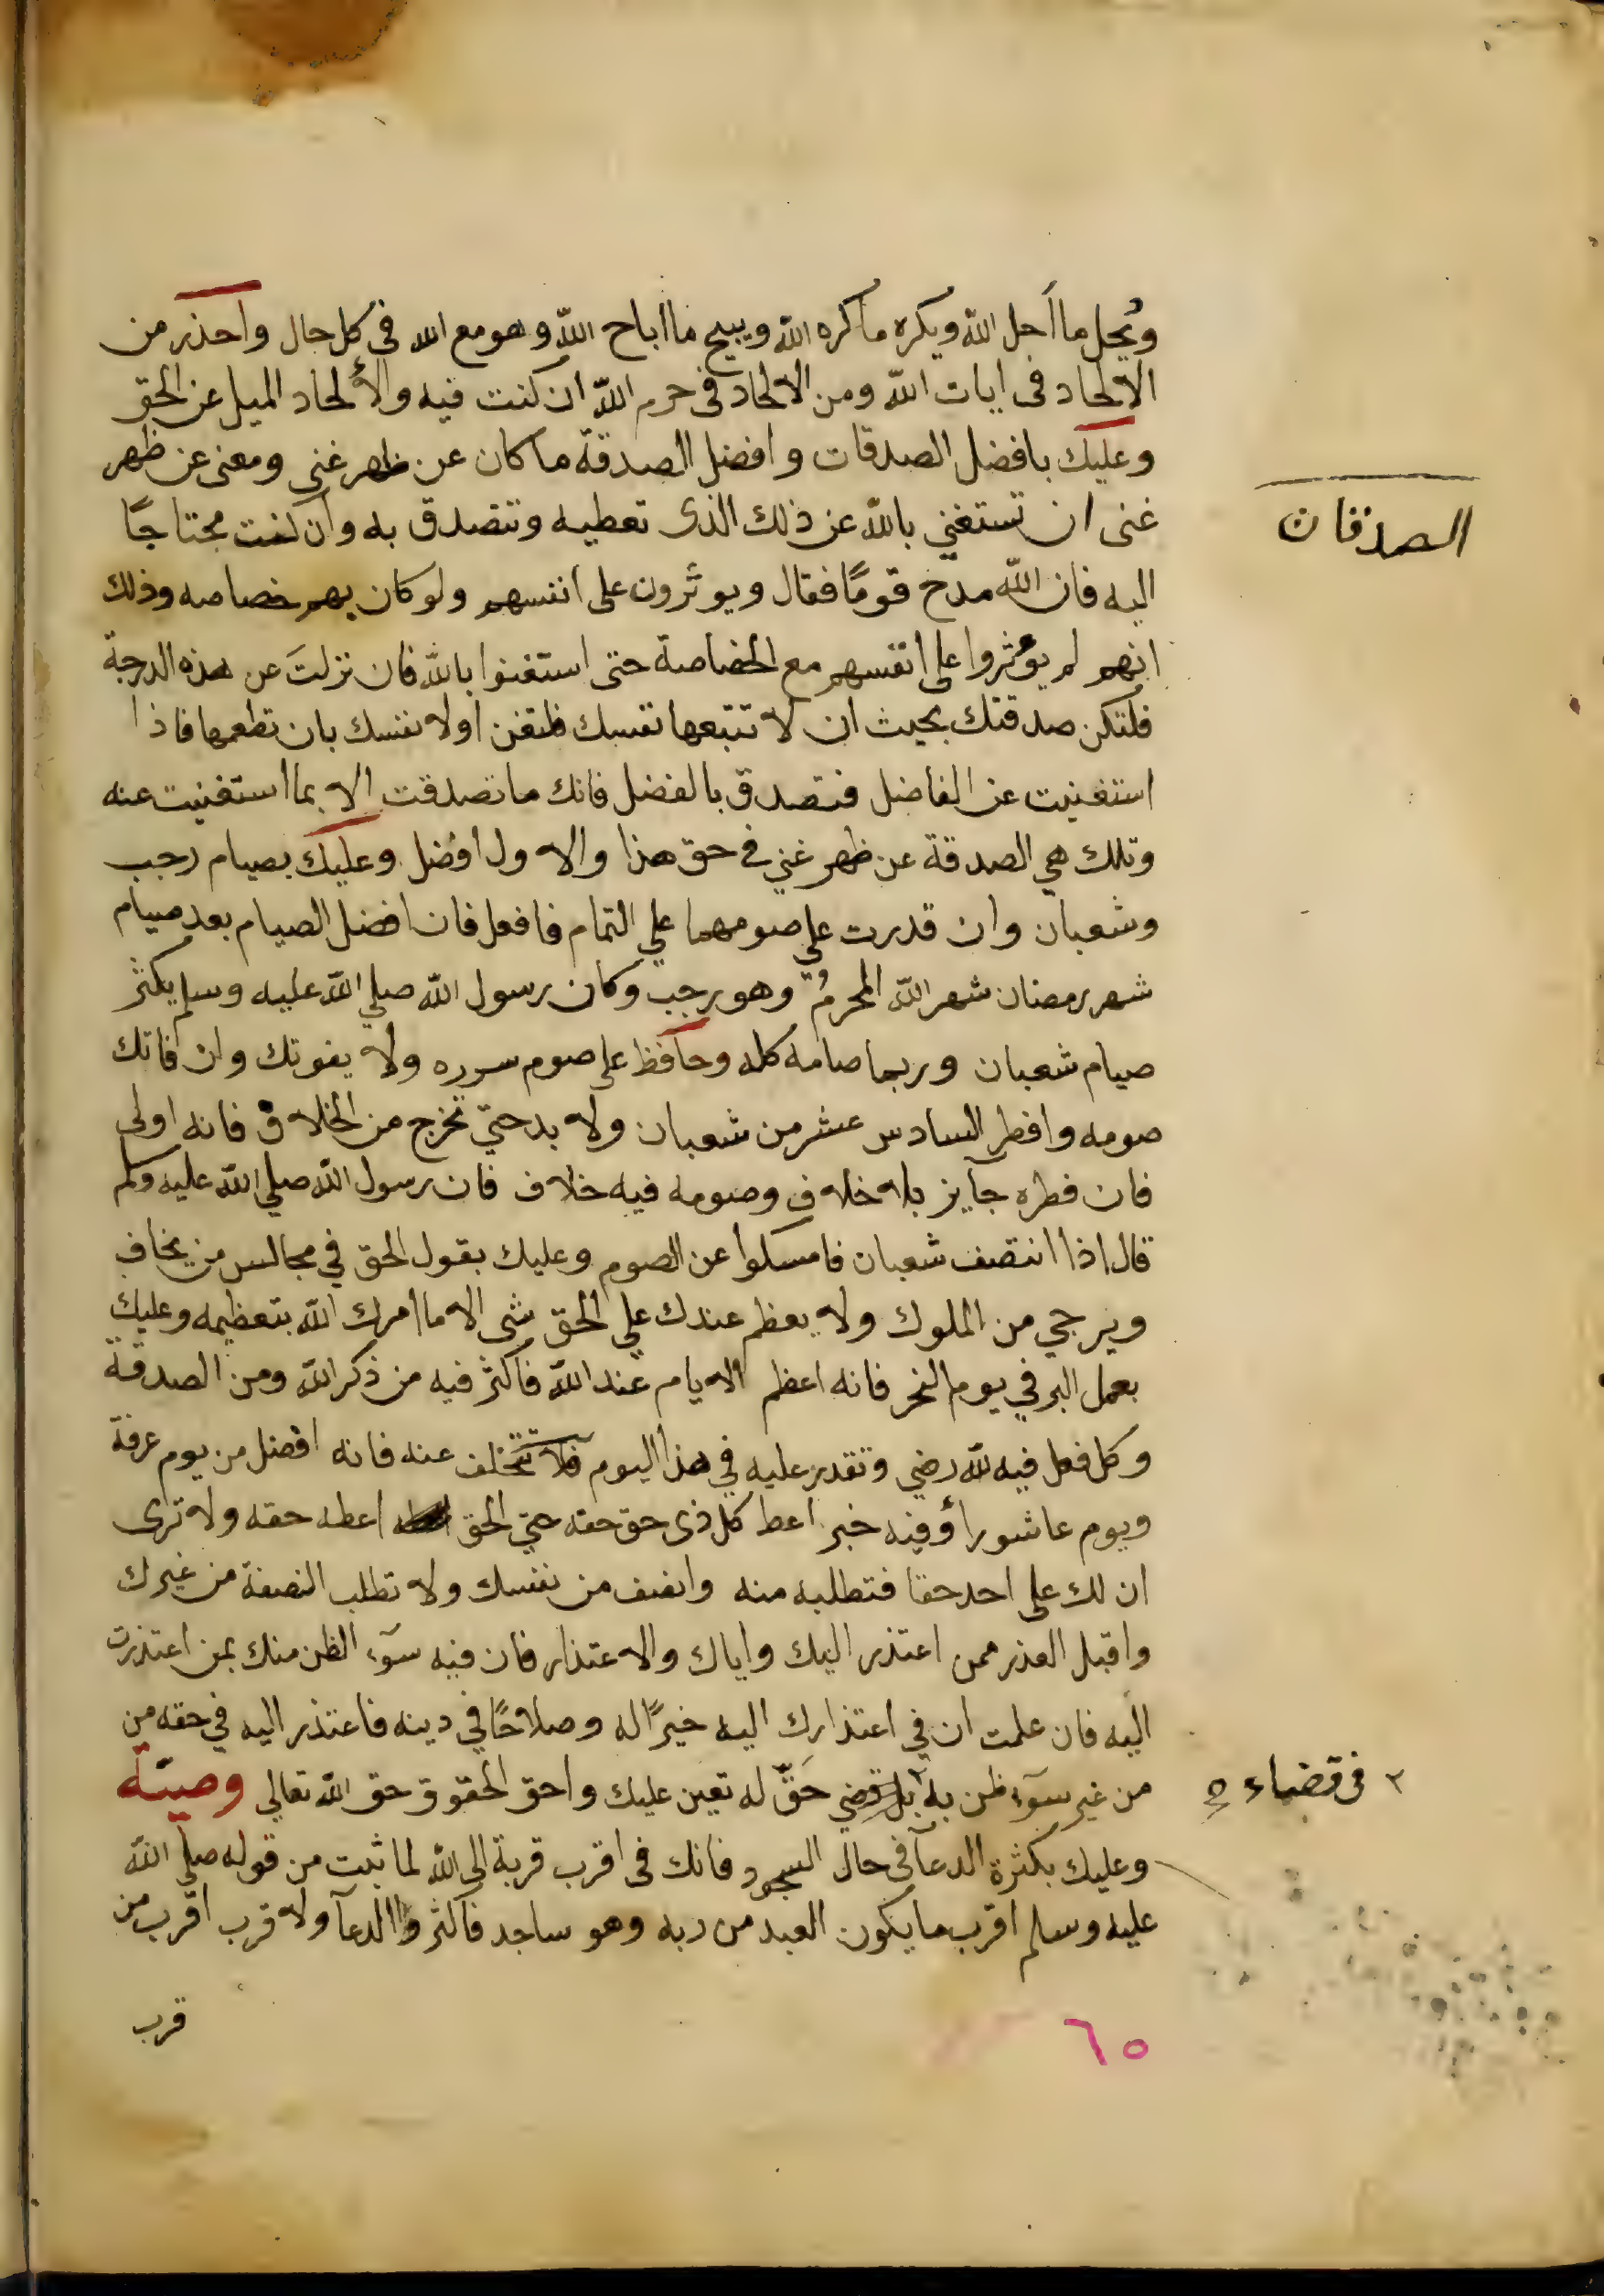 ويحل ما أحل الله ويكره ما كره الله ويبيح ما اباح الله وهو مع الله في كل حال واحذر من
الالحاد فى ايات الله ومن الالحاد فى حرم الله ان كنت فيه والألحاد الميل عن الحق
وعليك بافضل الصدقات وافضل الصدقة ما كان عن ظهر غنى ومعنى عن ظهر
الصدقات
غنى ان تستغني بالله عن ذلك الذى تعطيه وتتصدق به وان كنت محتاجًا
اليه فان الله مدح قومًا فقال ويوثرون على انفسهم ولو كان بهم خصاصه وذلك
انهم لم يؤثروا على انفسهم مع الخصاصة حتى استغنوا بالله فان نزلتَ عن هذه الدرجة
فلتكن صدقتك بحيث ان لا تتبعها نفسك فلتغن اولا نفسك بان تطعمها فاذا
استغنيت عن الفاضل فتصدق بالفضل فانك ما تصدقت الا بما استغنيت عنه
وتلك هي الصدقة عن ظهر غني في حق هذا والاول افضل وعليك بصيام رجب
وشعبان وان قدرت علي صومهما علي التمام فافعل فان افضل الصيام بعد صيام
شهر رمضان شهر الله المحرمُ وهو رجب وكان رسول الله صلي الله عليه وسلم يكثر
صيام شعبان وربما صامه كله وحافظ على صوم سرره ولا يفوتك وان فاتك
صومه وافطر السادس عشر من شعبان ولا بد حتي تخرج من الخلاف فانه اولى
فان فطره جآيز بلا خلاف وصومه فيه خلاف فان رسول الله صلي الله عليه وسلم
قال اذا انتصف شعبان فامسكوا عن الصوم وعليك بقول الحق في مجالس من يخاف
ويرجي من الملوك ولا يعظم عندك علي الحق شى الا ما امرك الله بتعظيمه وعليك
بعمل البر في يوم النحر فانه اعظم الايام عند الله فاكثر فيه من ذكر الله ومن الصدقة
وكل فعل فيه لله رضي وتقدر عليه في هذا اليوم فلا تتخلف عنه فانه افضل من يوم عرفة
ويوم عاشورأ وفيه خبر اعط كل ذى حق حقه حتي الحق اعطه حقه ولا ترى
ان لك على احد حقا فتطلبه منه وانصف من نفسك ولا تطلب النصفة من غيرك
واقبل العذر ممن اعتذر اليك واياك والاعتذار فان فيه سوٓء الظن منك بمن اعتذرت
اليه فان علمت ان في اعتذارك اليه خيرًا له وصلاحًا في دينه فاعتذر اليه في حقه من
من غير سوٓء ظن به بل قضي حَقّ له تعين عليك واحق الحقوق حق الله تعالي وصيّة
٢ فى قضاء
وعليك بكثرة الدعآ فى حال السجود فانك فى اقرب قربة الى الله لما ثبت من قوله صلي الله
عليه وسلم اقرب ما يكون العبد من ربه وهو ساجد فاكثروا الدعآ ولا قرب اقرب من
قرب
٦٥